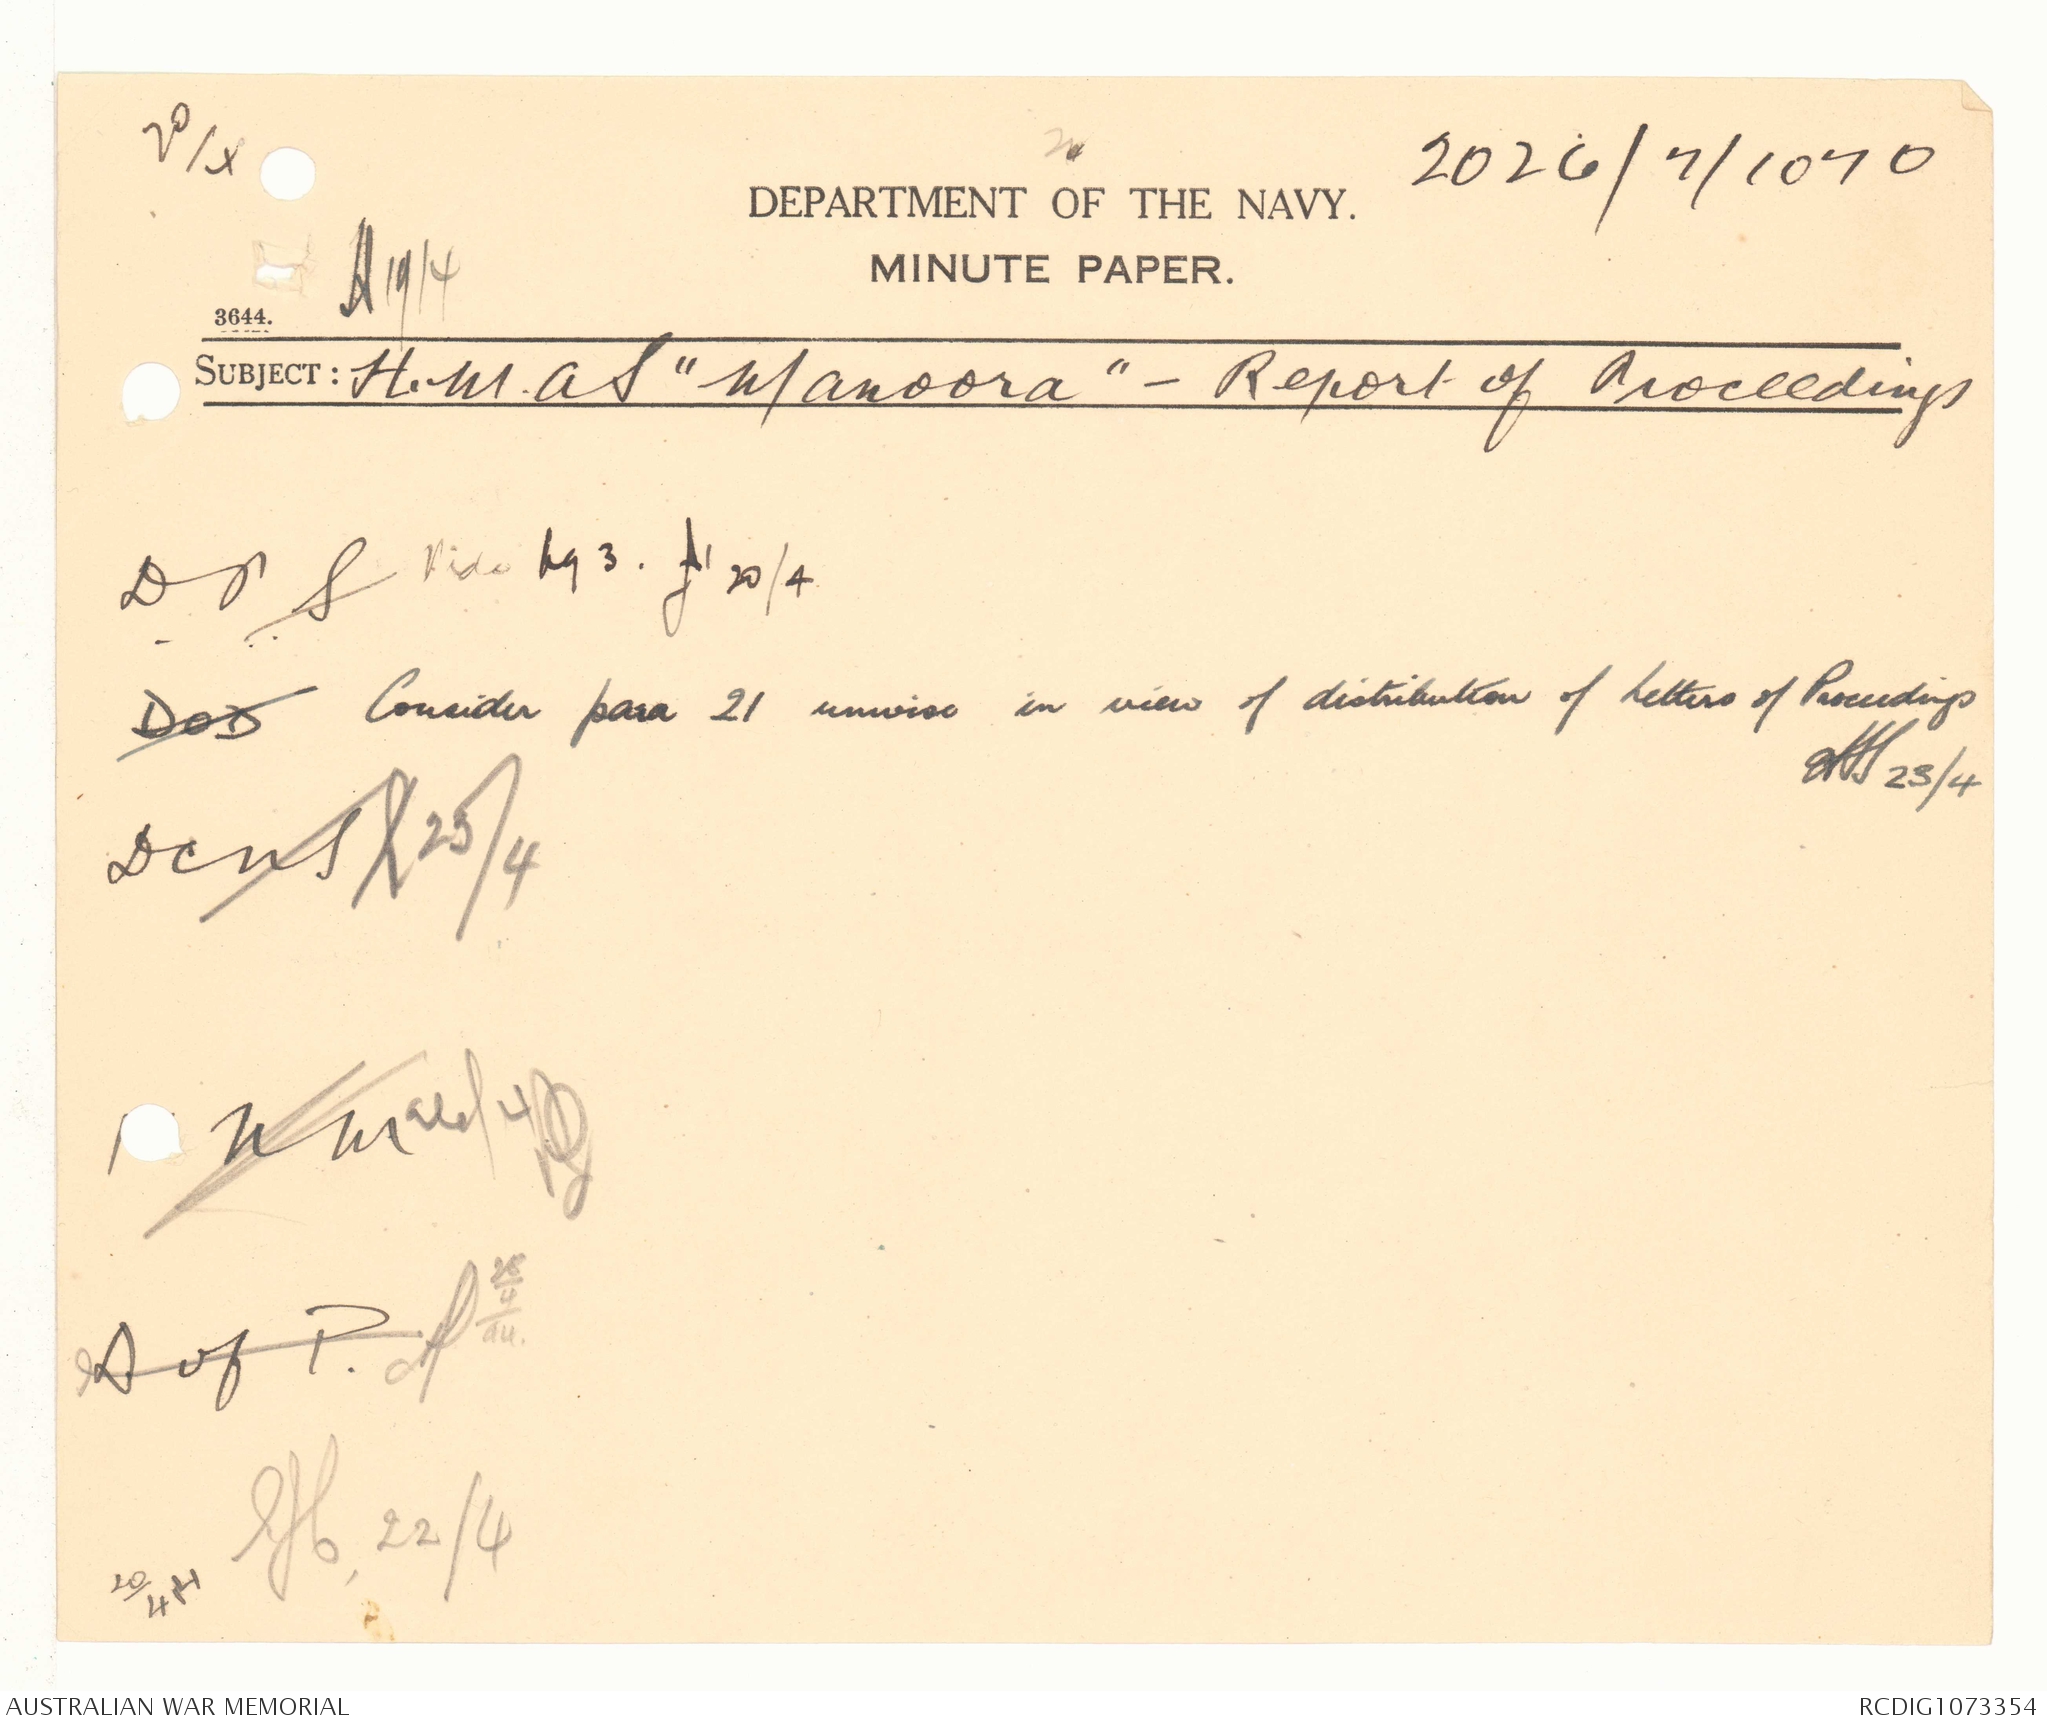 2026/7/1070
DEPARTMENT OF THE NAVY.
MINUTE PAPER.
19/4
3644.
SUBJECT: H.M.A S "Manoora" - Report of Proceedings
D P S Vide pg 3. 20/4
DOD Consider para 21 unwise in view of distribution of Letters of Proceedings
23/4
DCNS 23/4
N M /4
D of P. 25/4
22/4
20/4
AUSTRALIAN WAR MEMORIAL
RCDIG1073354